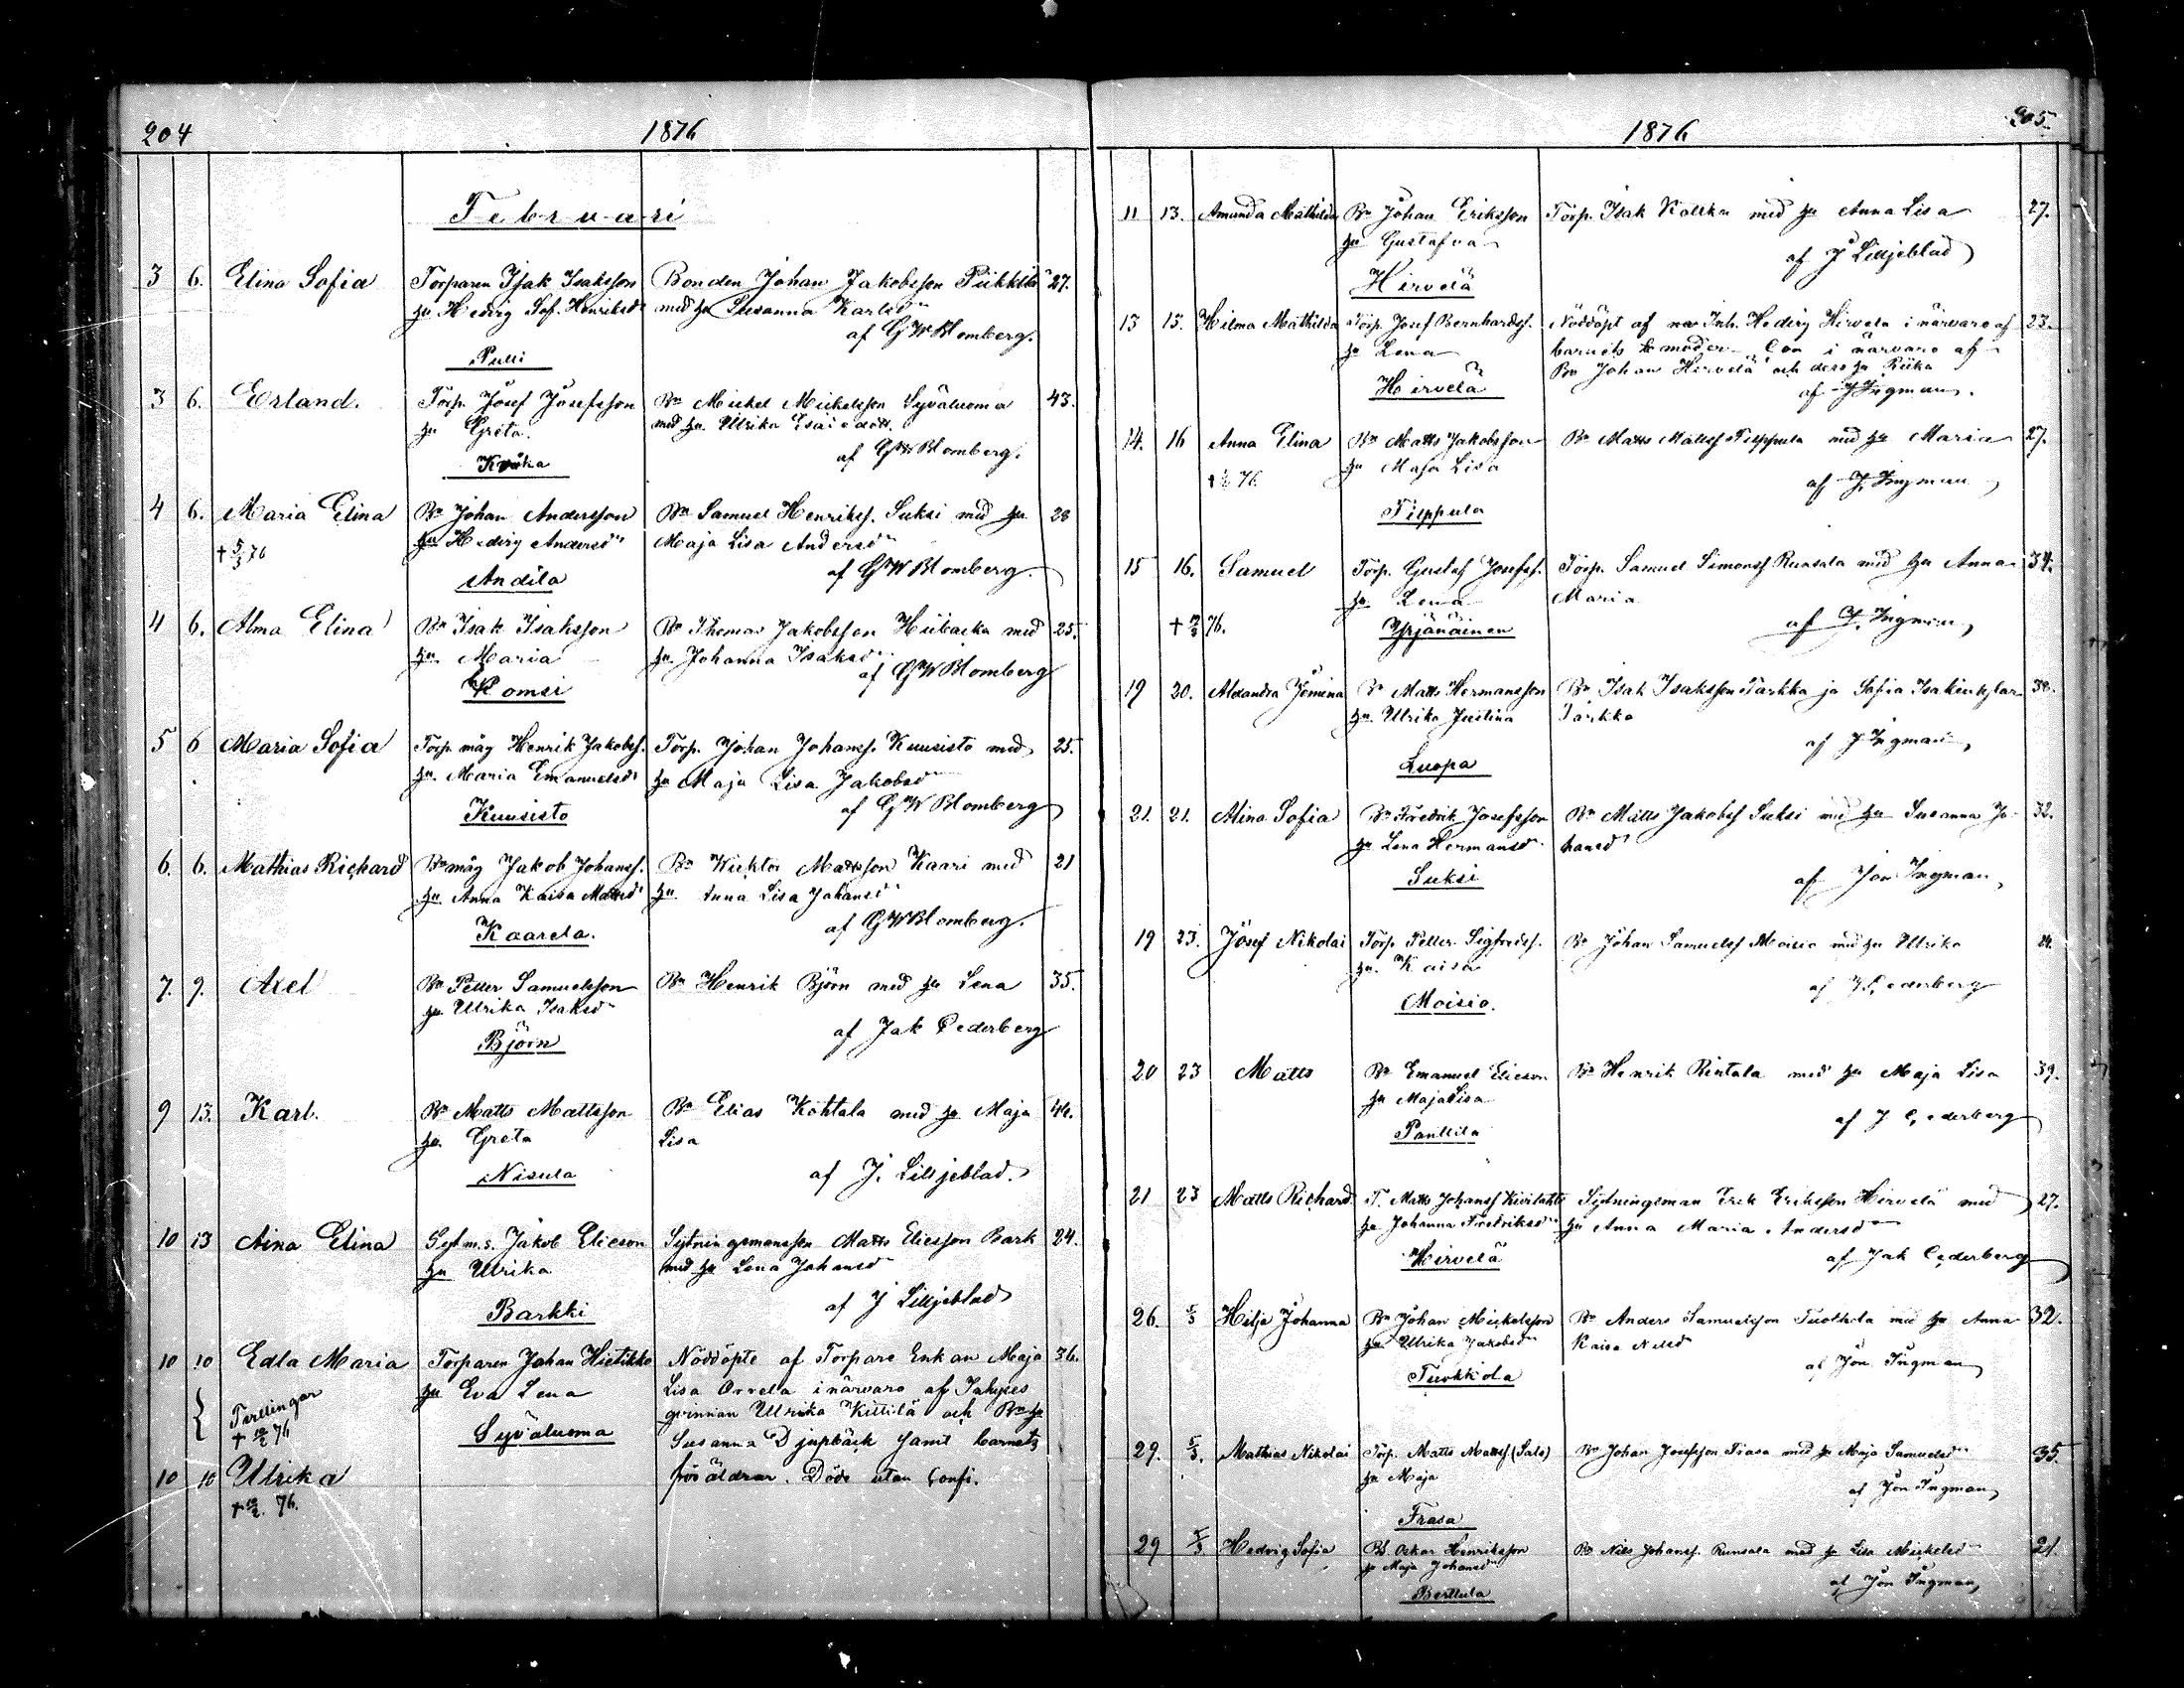 204
1876
Februari
3 6. Elina Sofia Torparen Isak Isaksson Bonden Johan Jakobsson Pükkilä 27.
hu Hedvig Sof. Henriksdr med hu Susanna Karlsdr
af GW Blomberg.
Pulli
3 6. Erland. Torp. Josef Josefsson Bn Mickel Mickelsson Syväluoma 43.
hu Greta. med hu. Ulrika Esaiedott.
af GW Blomberg.
4 6. Maria Elina Bn Johan Andersson Bn Samuel Henrikss. Suksi med hu 28
† 5/3 76 hu Hedvig Andersdr Maja Lisa Andersdr
Andila af GW Blomberg.
4 6. Alma Elina Bn Isak Isaksson Bn Thomas Jakobsson Hübacka med 25.
hu. Maria hu. Johanna Isaksdr
Komsi af GW Blomberg
5 6 Maria Sofia Torp. måg Henrik Jakobss. Torp. Johan Johanss. Kuusisto med 25.
hu. Maria Emanuelsdr hu Maja Lisa Jakobsdr
Kuusisto af GW Blomberg
6. 6. Mathias Richard Bn måg Jakob Johanss. Bn Wicktor Mattsson Kaari med 21
hu. Anna Kaisa Mattsdr hu. Anna Lisa Johansdr
Kaarela. af GW Blomberg.
7. 9. Axel Bn Petter Samuelsson Bn Henrik Björn med hu Lena 35.
hu Ulrika Isaksdr
Björn af Jak Cederberg
9 13. Karl. Bn Matts Mattsson Bn Elias Kohtala med hu Maja 44.
hu. Greta Lisa
Nisula af J. Lilljeblad.
10 13 Aina Elina Sytm.s. Jakob Elieson Sytningsmansson Matts Eliesson Bark 24.
hu Ulrika med hu Lena Johansdr
Barkki af J Lilljeblad
10 10 Edla Maria Torparen Johan Hietikko Nöddöpte af Torpare Enkan Maja 36.
Tvillingar hu Eva Lena Lisa Orrela i närvaro af
† 10/2 76 Syväluoma qvinnan Ulrika Kittilä och Bn hu
Susanna Djupbäck samt barnets
10 10 Ulrika föräldrar. Döde utan Conf.
† 10/2. 76.
205
1876
11 13. Amanda Mathilda Bn Johan Eriksson Torp. Isak Kallka med hu Anna Lisa 27.
hu Gustafva
Hirvelä af J Lilljeblad
13 15. Hilma Mathilda Torp. Josef Bernhardss. Nöddöpt af Inh. Hedvig Hirvela i närvaro af 23.
hu Lena barnets moder Con i närvaro af
Hirvelä Bn Johan Hirvelä och dess hu Riika
af J Ingman.
14. 16 Anna Elina Bn Matts Jakobsson Bn Matts Mattss Tilppula med hu Maria 27.
76 hu Maja Lisa
Tilppula af J. Ingman
15 16. Samuel Torp. Gustaf Josefss. Torp. Samuel Simonss Runsala med hu Anna 34.
hu Lena Maria
76. Yrjänäinen af J. Ingman
19 20. Alexandra Jemina Bn Matts Hermansson Bn Isak Isaksson Tarkka ja Sofia Isakintytar 38.
hu Ulrika Justina Tarkka
Luopa af J Ingman
21. 21. Alina Sofia Bn Fredrik Josefsson Bn Matts Jakobss Suksi med hu Susanna Jo- 32.
hu Lena Hermansdr hansdr
Suksi af Jon Ingman
19 23. Josef Nikolai Torp Petter Sigfredss. Bn Johan Samuelss Moisio med hu Ulrika 24.
hu. Kaisa
Moisio. af J Cederberg
20 23 Matts Bn Emanuel Elieson Bn Henrik Rintala med hu Maja Lisa 39.
hu Maja Lisa
Panttila af J Cederberg
21 23 Matts Richard T. Matts Johanss Kivilahti Sytningsman Erik Eriksson Hirvelä med 27.
hu Johanna Fredriksdr hu Anna Maria Andersdr
Hirvelä af Jak Cederberg
26. 5/3 Hilja Johanna Bn Johan Mickelsson Bn Anders Samuelsson Tuokkola med hu Anna 32.
hu Ulrika Jakobsdr Kaisa Nilsdr
Tuokkola af Jon Ingman
29. 5/3. Mathias Nikolai Torp. Matts Mattss (Salo) Bn Johan Josefsson Frasa med hu Maja Samuelsdr 35.
hu Maja
Frasa af Jon Ingman
29 5/3. Hedvig Sofia Bd Oskar Henriksson Bn Nils Johanss. Runsala med hu Lisa Mickelsdr 21.
hu Maja Johansdr
Berttula af Jon Ingman